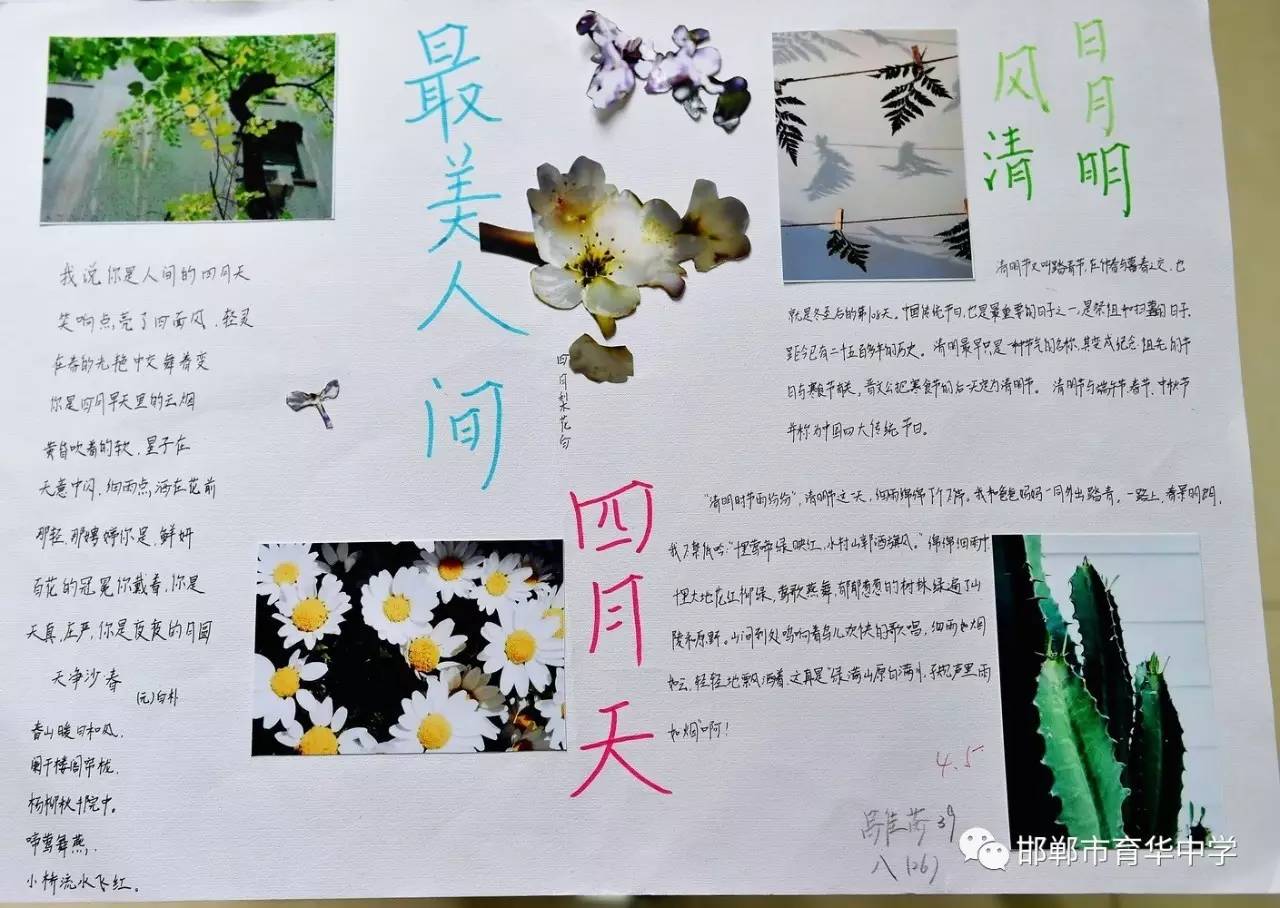 最美人间
四月天
日月明
风清
四月梨花白
我说你是人间的四月天
笑响点亮了四面风,轻灵
在春的光艳中交舞着变
你是四月早天里的云烟
黄昏吹着的软,星子在
无意中闪,细雨点洒在花前
那轻,那娉婷你是,鲜妍
百花的冠冕你戴着,你是
天真,庄严,你是夜夜的月圆
天净沙·春
(元)白朴
春山暖日和风,
阑干楼阁帘栊,
杨柳秋千院中。
啼莺舞燕,
小桥流水飞红。
清明节又叫踏青节,在仲春与暮春之交,也
就是冬至后的第108天。中国传统节日,也是最重要的日子之一,是祭祖和扫墓的日子.
距今已有二十五百多年的历史。清明最早只是一种节气的名称,其变成纪念祖先的节
日与寒食节有关,晋文公把寒食节的后一天定为清明节。清明节与端午节、春节、中秋节
并称为中国四大传统节日。
"清明时节雨纷纷",清明节这一天,细雨绵绵下个不停。我和爸爸妈妈一同外出踏青。一路上,春景明朗,
我不禁低吟:"千里莺啼绿映红,水村山郭酒旗风。"绵绵细雨中
大地花红柳绿,莺歌燕舞,郁郁葱葱的树林绿遍了山
陵和原野。山间到处鸣响着鸟儿欢快的歌唱,细雨如烟
如云,轻轻地飘洒着,这真是"绿满山原白满川,子规声里雨
如烟"啊!
4.5
39
八(26)
邯郸市育华中学